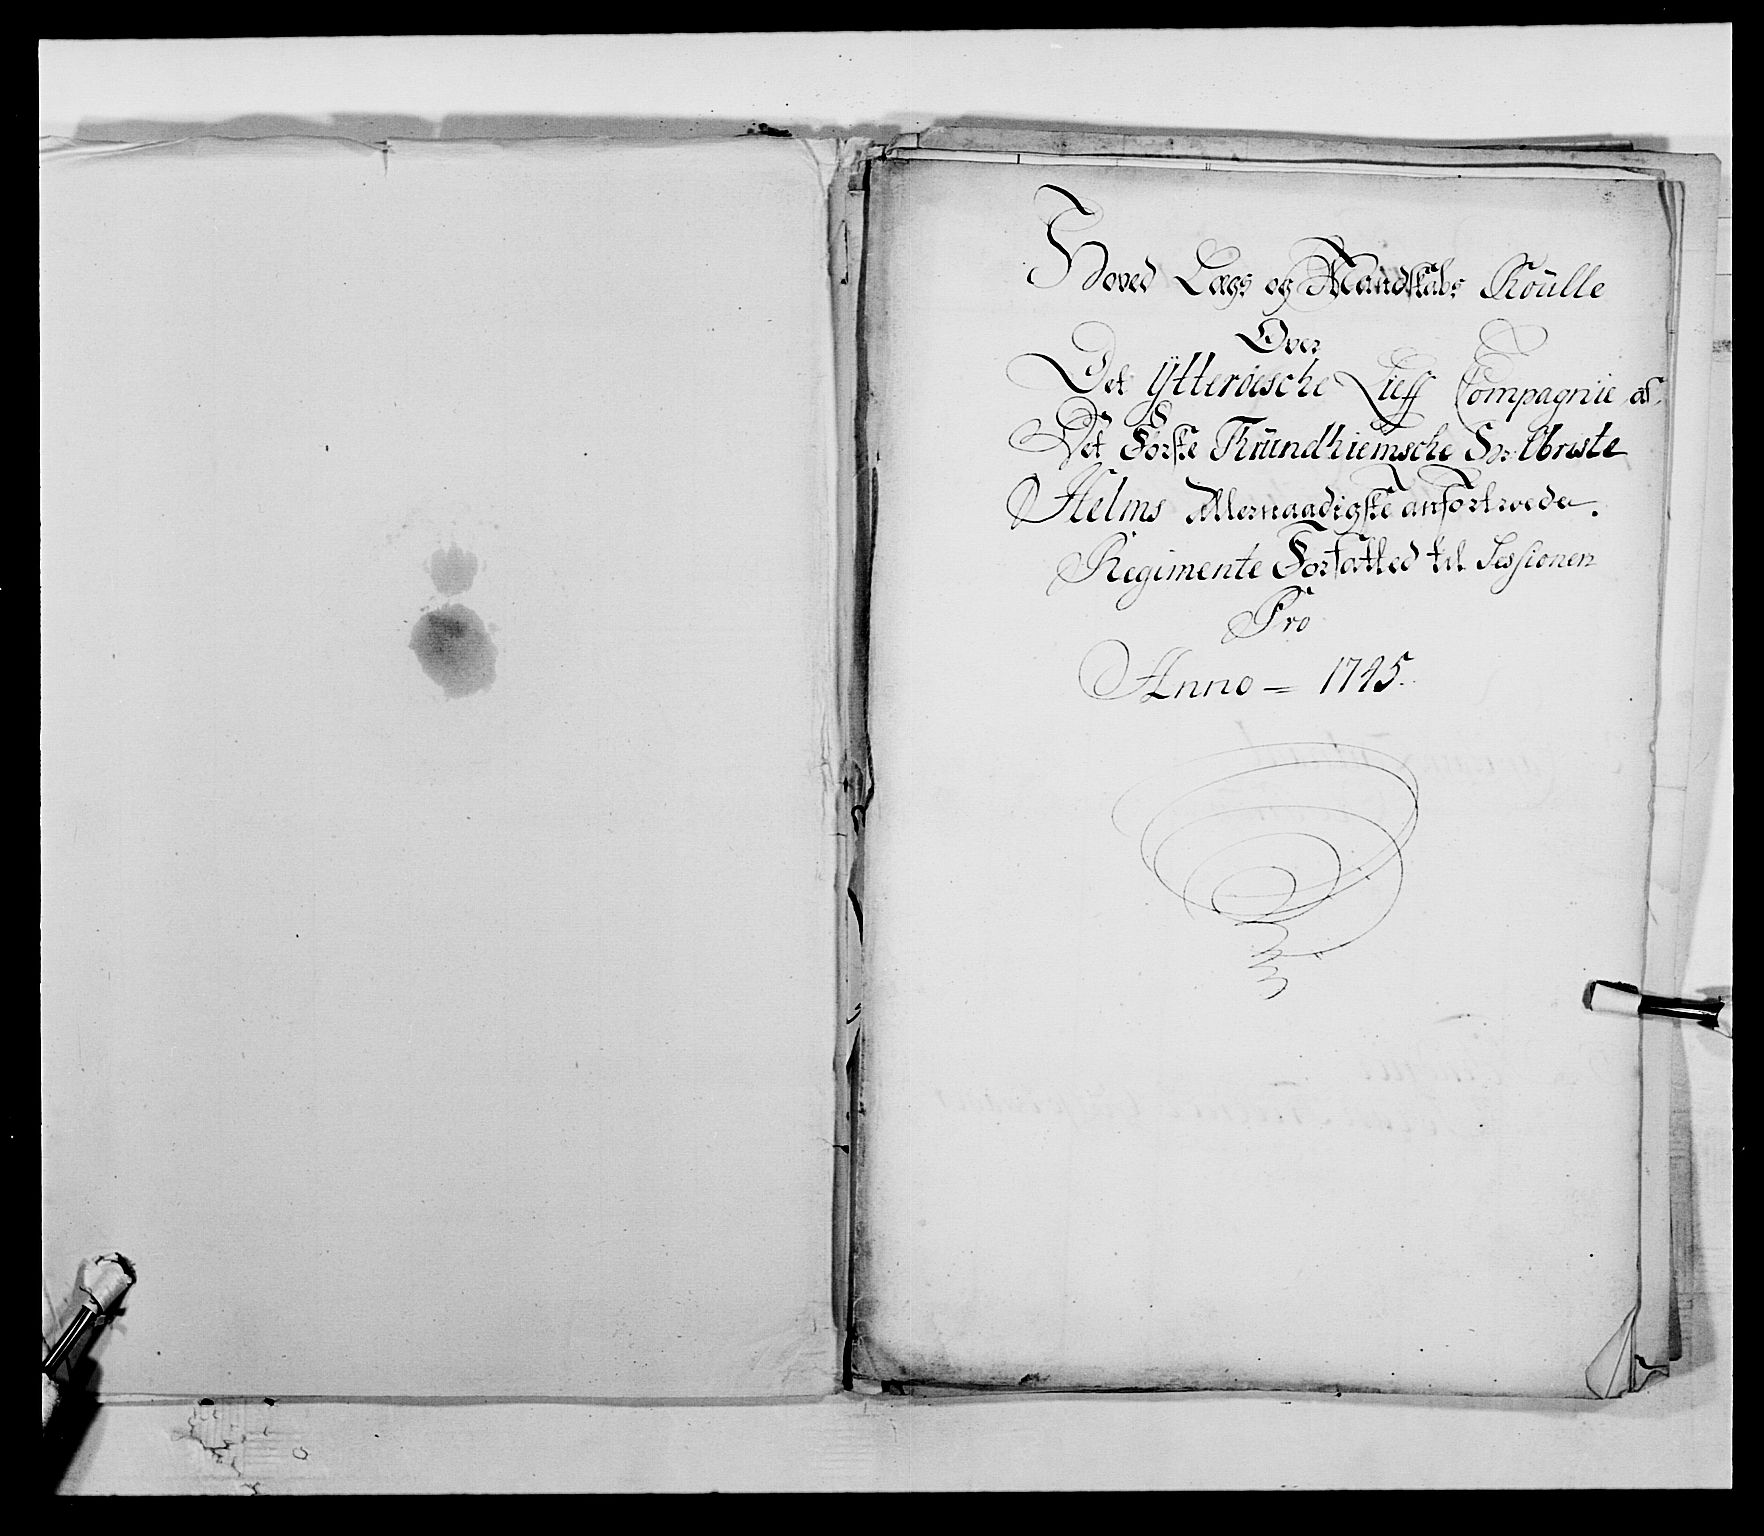 Hoved Lægs og Mandskabs Roülle
Over
Det Ytterøesche Lieff Compagnie af
Det Første Tründhiemsche Hr. Obriste
Helms Allernaadigste anfortroede
Regimente Forfatted til Sessionen
Pro
Anno = 1745.